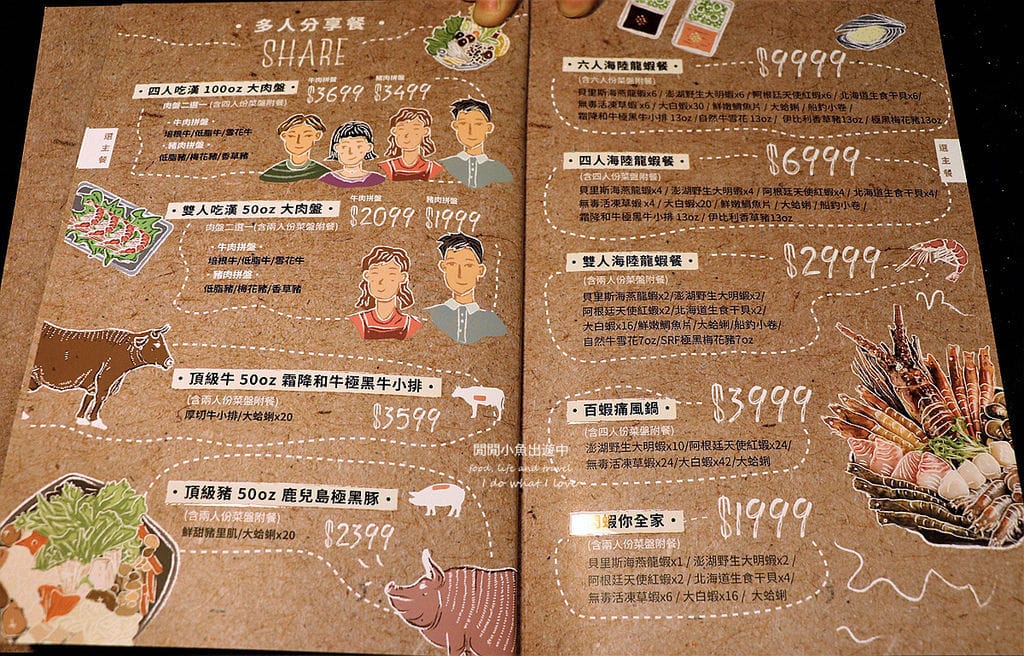 多人分享餐
SHARE
· 四人吃漢 100oz 大肉盤 ·
牛肉拼盤 豬肉拼盤
$3699 $3499
肉盤二選一(含四人份菜盤附餐)
·牛肉拼盤·
培根牛/低脂牛/雪花牛
·豬肉拼盤·
低脂豬/梅花豬/香草豬
選主餐
· 雙人吃漢 50oz 大肉盤 ·
牛肉拼盤 豬肉拼盤
$2099 $1999
肉盤二選一(含兩人份菜盤附餐)
·牛肉拼盤·
培根牛/低脂牛/雪花牛
·豬肉拼盤·
低脂豬/梅花豬/香草豬
· 頂級牛 50oz 霜降和牛極黑牛小排 ·
(含兩人份菜盤附餐)
厚切牛小排/大蛤蜊x20
$3599
· 頂級豬 50oz 鹿兒島極黑豚 ·
(含兩人份菜盤附餐)
鮮甜豬里肌/大蛤蜊x20
$2399
· 六人海陸龍蝦餐 ·
$9999
(含六人份菜盤附餐)
貝里斯海燕龍蝦x6 / 澎湖野生大明蝦x6 / 阿根廷天使紅蝦x6 / 北海道生食干貝x6/
無毒活凍草蝦x6 / 大白蝦x30 / 鮮嫩鯛魚片 / 大蛤蜊 / 船釣小卷 /
霜降和牛極黑牛小排 13oz /自然牛雪花 13oz / 伊比利香草豬13oz / 極黑梅花豬13oz
· 四人海陸龍蝦餐 ·
$6999
(含四人份菜盤附餐)
貝里斯海燕龍蝦x4 / 澎湖野生大明蝦x4 / 阿根廷天使紅蝦x4 / 北海道生食干貝x4/
無毒活凍草蝦 x4 / 大白蝦x20 / 鮮嫩鯛魚片 / 大蛤蜊/ 船釣小卷 /
霜降和牛極黑牛小排 13oz / 伊比利香草豬13oz
選主餐
· 雙人海陸龍蝦餐 ·
$2999
(含兩人份菜盤附餐)
貝里斯海燕龍蝦x2/澎湖野生大明蝦x2/
阿根廷天使紅蝦x2/北海道生食干貝x2/
大白蝦x16/鮮嫩鯛魚片/大蛤蜊/船釣小卷/
自然牛雪花7oz/SRF極黑梅花豬7oz
· 百蝦痛風鍋 ·
$3999
(含四人份菜盤附餐)
澎湖野生大明蝦x10/阿根廷天使紅蝦x24/
無毒活凍草蝦x24/大白蝦x42/大蛤蜊
蝦你全家 ·
$1999
(含兩人份菜盤附餐)
貝里斯海燕龍蝦x1 / 澎湖野生大明蝦x2 /
阿根廷天使紅蝦x2 / 北海道生食干貝x4/
無毒活凍草蝦x6 / 大白蝦x16 / 大蛤蜊
閒閒小魚出遊中
food, life and travel
I do what I love